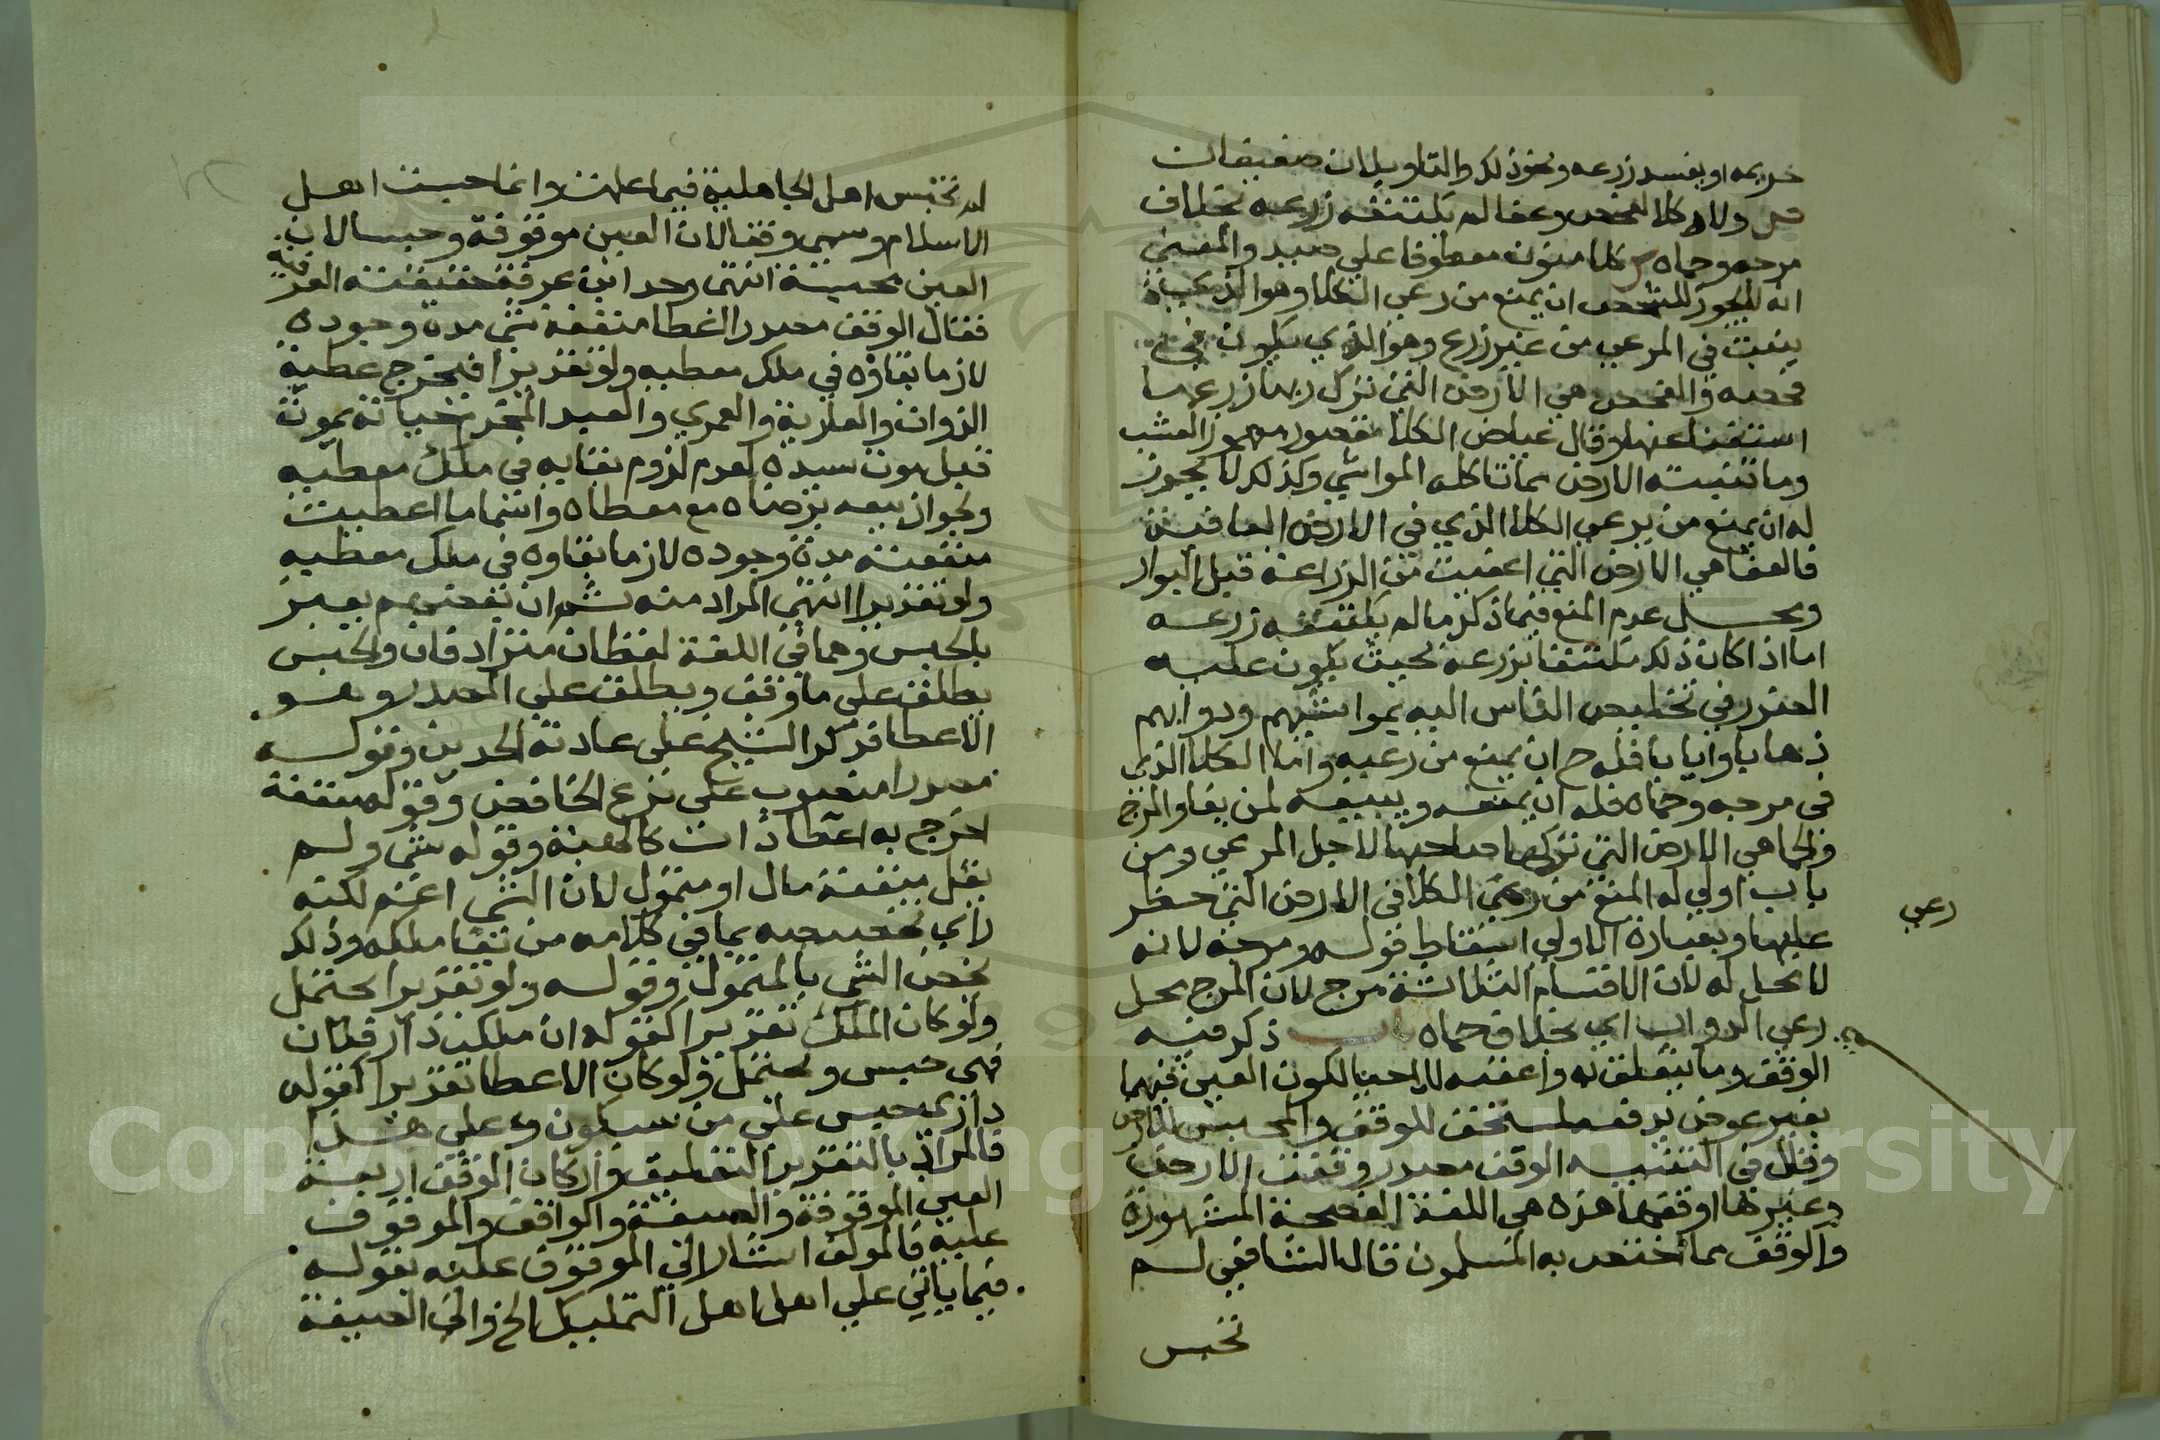 حريمه او يفسد زرعه ونحو ذلك والتاويلان ضعيفان
ص ولا كلا بفحص وعفا لم يكتنفه زرعه بخلاف
مرجه وحماه ش كلا منون معطوفا على صيد والمعنى
انه لا يجوز للشخص ان يمنع من رعي الكلا وهو
ينبت في المرعى من غير زرع وهو الذي يكون في
فحصه والفحص هي الارض التي ترك ربها زرعها
استغنا عنها وقال عياض الكلا مقصور مهموز العشب
وما تنبته الارض مما تاكله المواشي وكذلك لا يجوز
له ان يمنع من يرعى الكلا الذي في الارض العافية
فالعفا هي الارض التي اعفيت من الزراعة قبل البوار
ومحل عدم المنع فيما ذكر ما لم يكتنفه زرعه
اما اذا كان ذلك مكتنفا بزرعه بحيث يكون عليه
الضرر في تخليص الناس اليه بمواشيهم ودوابهم
ذهابا وايابا فله ح ان يمنع من رعيه واما الكلا الذي
في مرجه وحماه فله ان يمنعه ويبيعه لمن يشا والمرج
والحما هي الارض التي تركها صاحبها لاجل المرعى ومن
باب اولى له المنع من رعي الكلا في الارض التي حظر
رعي
عليها وبعبارة الاولى اسقاط قوله ومرجه لانه
لا محل له لان الاقسام الثلاثة مرج لان المرج محل
رعي الدواب اي بخلاف حماه باب ذكر فيه
الوقف وما يتعلق به واعقبه للاحيا لكون العين فيهما
بغير عوض يدفعه المستحق للوقف والمحيي للارض
وقال في التنبيه الوقف مصدر وقفت الارض
وغيرها اوقفها هذه هي اللغة الفصيحة المشهورة
والوقف مما اختص به المسلمون قال الشافعي لم
تحبس
لم تحبس اهل الجاهلية فيما علمت وانما حبست اهل
الاسلام وسمي وقفا لان العين موقوفة وحبسا لان
العين محبسة انتهى وحد ابن عرفة حقيقته العرفية
فقال الوقف مصدرا اعطا منفعة شي مدة وجوده
لازما بقاؤه في ملك معطيه ولو تقديرا فيخرج عطية
الذوات والعارية والعمرى والعبد المخدم حياته يموت
قبل موت سيده لعدم لزوم بقايه في ملك معطيه
ولجواز بيعه برضاه مع معطاه واسما ما اعطيت
منفعته مدة وجوده لازما بقاوه في ملك معطيه
ولو تقديرا انتهى المراد منه ثم ان بعضهم يعبر
بالحبس وهما في اللغة لفظان مترادفان والحبس
يطلق على ما وقف ويطلق على المصدر وهو
الاعطا فذكر الشيخ على عادته الحدين وقوله
مصدرا منصوب على نزع الخافض وقوله منفعة
اخرج به اعطا ذات كالهبة وقوله شي ولم
يقل منفعة مال او متمول لان الشي اعم لكنه
راي تخصيصه بما في كلامه من بقا ملكه وذلك
يخص الشي بالمتمول وقوله ولو تقديرا يحتمل
ولو كان الملك تقديرا كقوله ان ملكت دار فلان
فهي حبس ويحتمل ولو كان الاعطا تقديرا كقوله
داري حبس على من سيكون وعلى هذا
فالمراد بالتقدير التعليق واركان الوقف اربعة
العين الموقوفة والصيغة والواقف والموقوف
عليه فالمولف اشار الى الموقوف عليه بقوله
فيما ياتي على اهل اهل التمليك الخ والى الصيغة